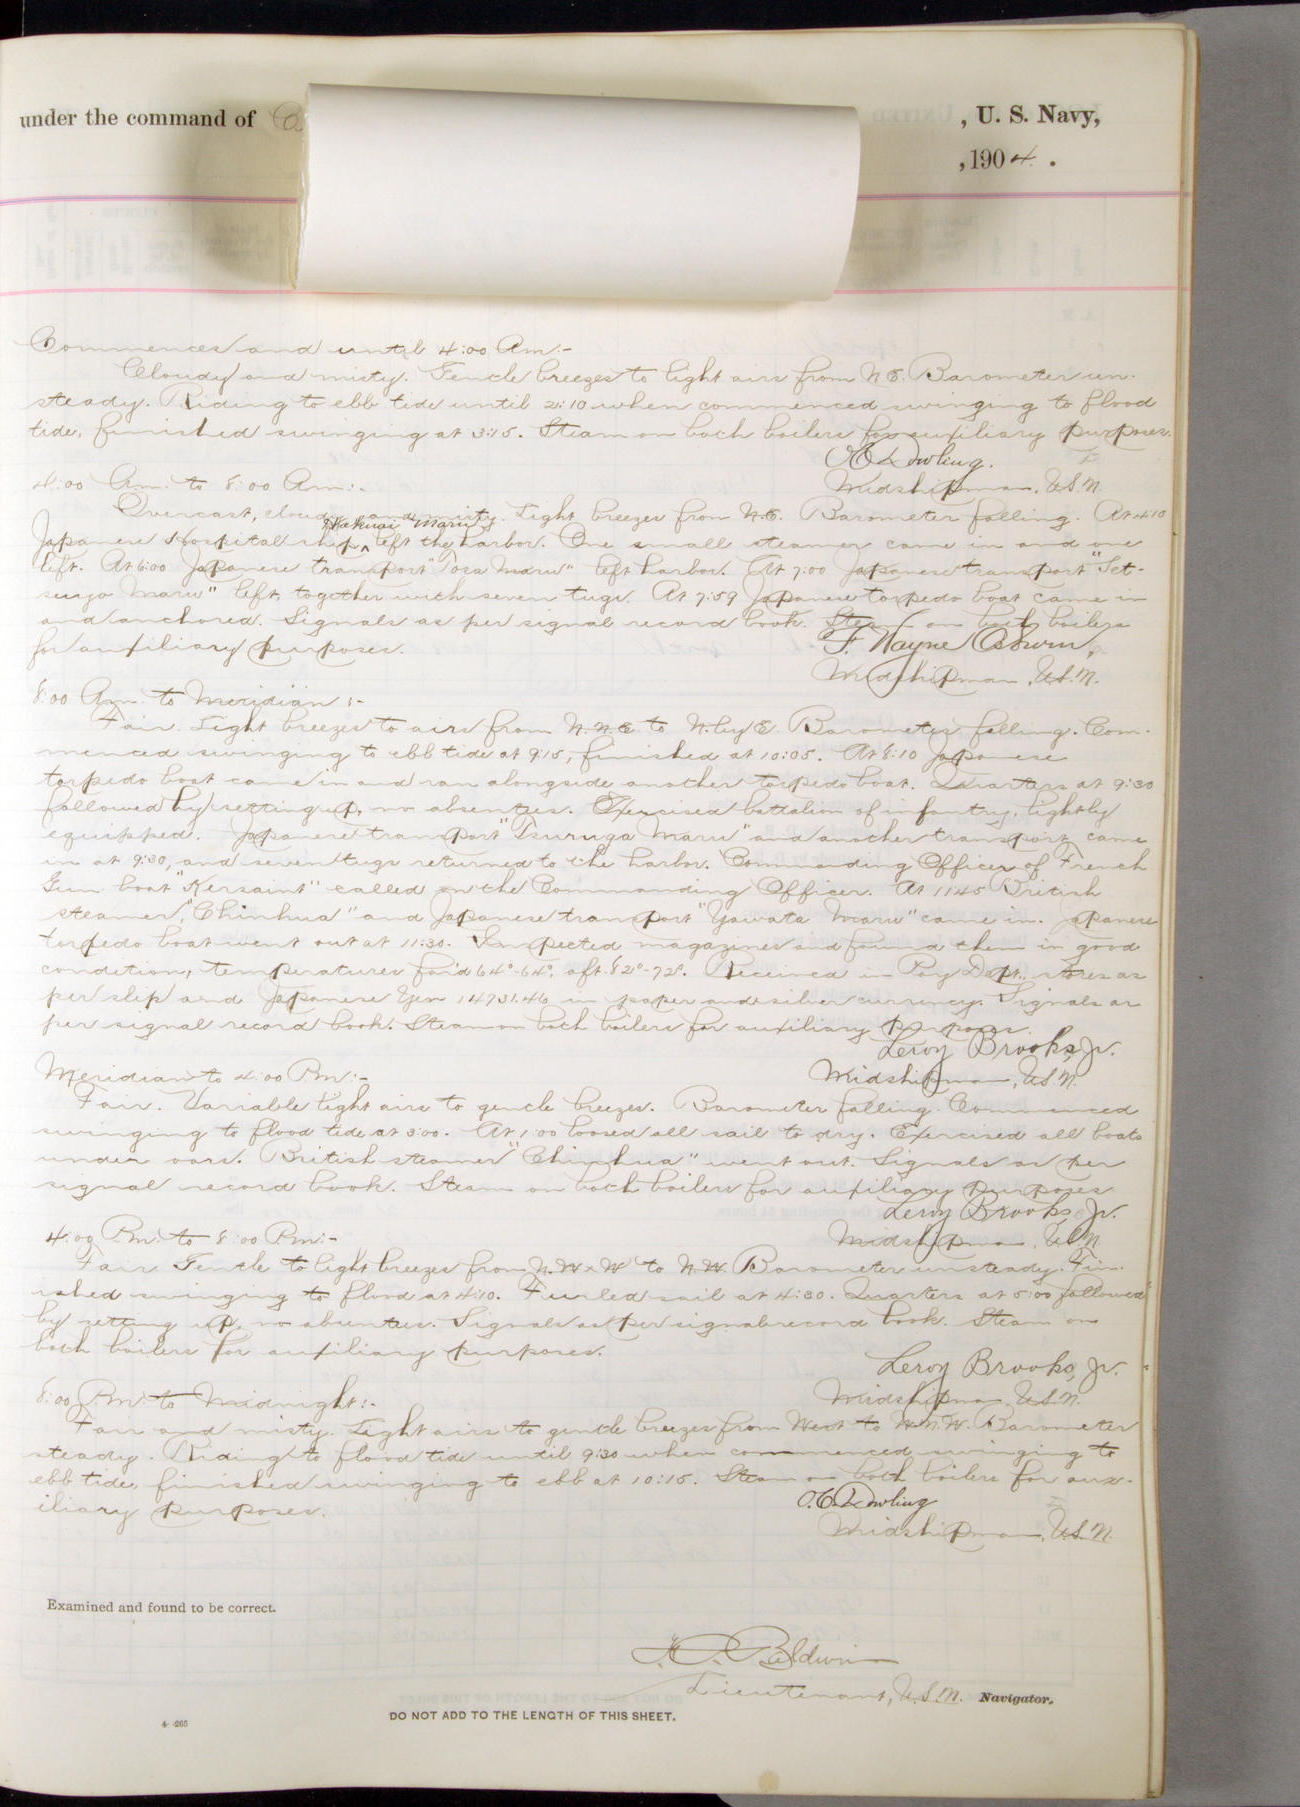 under the command of
, U. S. Navy,
, 1904.
Commences and until 4:00 Am:-
Cloudy and misty. Gentle breezes to light airs from N.E. Barometer un-
steady. Riding to ebb tide until 2:10 when commenced swinging to flood
tide, finished swinging at 3:15. Steam on both boilers for auxiliary purposes.
O.C. Dowling.
Midshipman, U.S.N.
4:00 Am: to 8:00 Am:-
Overcast, cloudy and misty. Light breezes from N.E. Barometer falling. At 4:10
Japanese Hospital ship Maru left the harbor. One small steamer came in and one
left. At 6:00 Japanese transport "Tosa Maru" left harbor. At 7:00 Japanese transport "Set-
suyo Maru" left, together with seven tugs. At 7:59 Japanese torpedo boat came in
and anchored. Signals as per signal record book. Steam on both boilers
for auxiliary purposes.
F. Wayne Osburn,
Midshipman, U.S.N.
8:00 Am. to Meridian:-
Fair. Light breezes to airs from N.N.E. to N. by E. Barometer falling. Com-
menced swinging to ebb tide at 9:15, finished at 10:05. At 8:10 Japanese
torpedo boat came in and ran alongside another torpedo boat. Quarters at 9:30
followed by setting up, no absentees. Exercised battalion of infantry, lightly
equipped. Japanese transport "Tsuruga Maru" and another transport came
in at 9:30, and seven tugs returned to the harbor. Commanding Officer of French
Gun boat "Kersaint" called on the Commanding Officer. At 11:45 British
steamer, "Chinhua" and Japanese transport "Yawata Maru" came in. Japanese
torpedo boat went out at 11:30. Inspected magazines and found them in good
condition, temperatures for'd 64°-64°, aft. 82°-72°. Received in Pay Dept., stores as
per slip and Japanese Yen 14731.46 in paper and silver currency. Signals as
per signal record book. Steam on both boilers for auxiliary purposes.
Leroy Brooks, Jr.
Midshipman, U.S.N.
Meridian to 4:00 Pm:-
Fair. Variable light airs to gentle breezes. Barometer falling. Commenced
swinging to flood tide at 3:00. At 1:00 loosed all sail to dry. Exercised all boats
under oars. British steamer "Chinhua" went out. Signals as per
signal record book. Steam on both boilers for auxiliary purposes
Leroy Brooks, Jr.
Midshipman, U.S.N.
4:00 P.m: to 8:00 Pm:-
Fair. Gentle to light breezes from N.W x W to N.W. Barometer unsteady. Fin-
ished swinging to flood at 4:10. Furled sail at 4:30. Quarters at 5:00 followed
by setting up, no absentees. Signals as per signal record book. Steam on
both boilers for auxiliary purposes.
Leroy Brooks, Jr.
Midshipman, U.S.N.
8:00 P.m: to Midnight:-
Fair and misty. Light airs to gentle breezes from West to W.N.W. Barometer
steady. Riding to flood tide until 9:30 when commenced swinging to
ebb tide, finished swinging to ebb at 10:15. Steam on both boilers for aux-
iliary purposes.
O.C. Dowling
Midshipman, U.S.N.
Examined and found to be correct.
Baldwin
Lieutenant, U.S.N. Navigator.
DO NOT ADD TO THE LENGTH OF THIS SHEET.
4-265